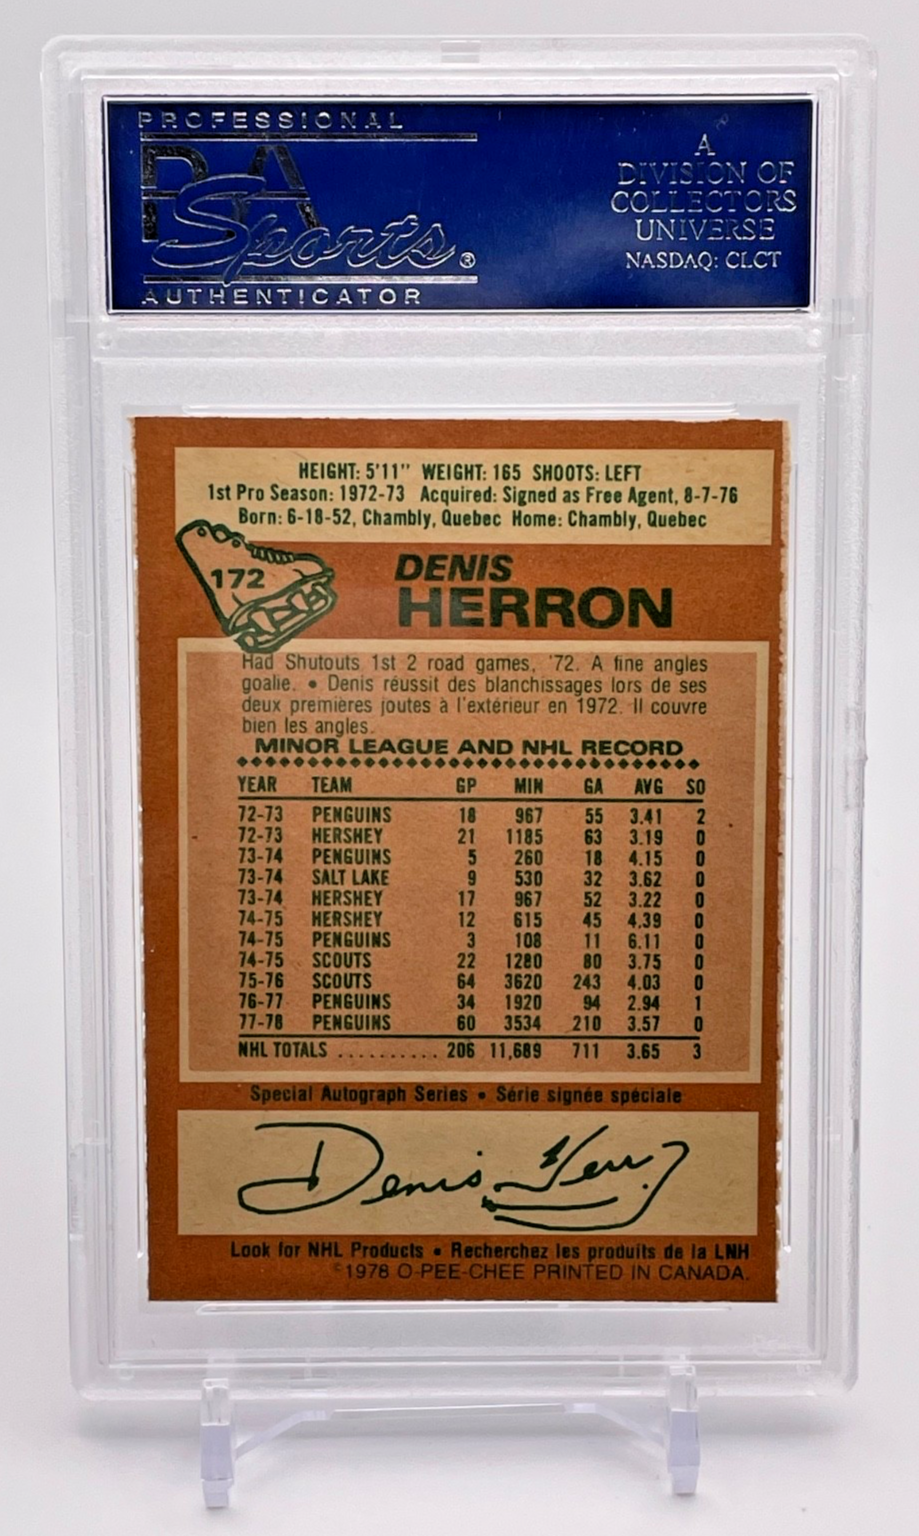 PROFESSIONAL
PSA
Sports®
AUTHENTICATOR
A
DIVISION OF
COLLECTORS
UNIVERSE
NASDAQ: CLCT
HEIGHT: 5'11" WEIGHT: 165 SHOOTS: LEFT
1st Pro Season: 1972-73 Acquired: Signed as Free Agent, 8-7-76
Born: 6-18-52, Chambly, Quebec Home: Chambly, Quebec
172
DENIS
HERRON
Had Shutouts 1st 2 road games, '72. A fine angles
goalie. • Denis réussit des blanchissages lors de ses
deux premières joutes à l'extérieur en 1972. Il couvre
bien les angles.
MINOR LEAGUE AND NHL RECORD
YEAR TEAM GP MIN GA AVG SO
72-73 PENGUINS 18 967 55 3.41 2
72-73 HERSHEY 21 1185 63 3.19 0
73-74 PENGUINS 5 260 18 4.15 0
73-74 SALT LAKE 9 530 32 3.62 0
73-74 HERSHEY 17 967 52 3.22 0
74-75 HERSHEY 12 615 45 4.39 0
74-75 PENGUINS 3 108 11 6.11 0
74-75 SCOUTS 22 1280 80 3.75 0
75-76 SCOUTS 64 3620 243 4.03 0
76-77 PENGUINS 34 1920 94 2.94 1
77-78 PENGUINS 60 3534 210 3.57 0
NHL TOTALS .......... 206 11,689 711 3.65 3
Special Autograph Series • Série signée spéciale
Denis Herron
Look for NHL Products • Recherchez les produits de la LNH
©1978 O-PEE-CHEE PRINTED IN CANADA.